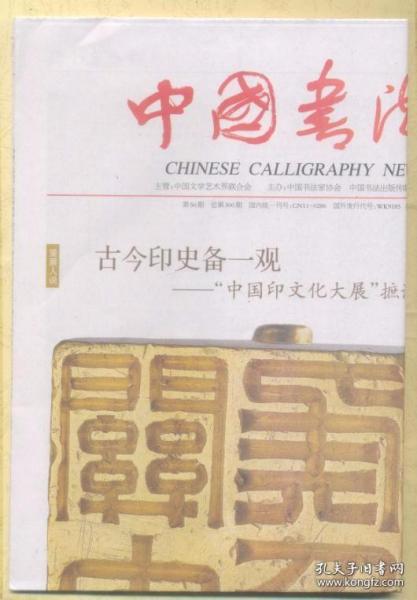 中國書法
CHINESE CALLIGRAPHY NE
主管：中国文学艺术界联合会 主办：中国书法家协会 中国书法出版传
第56期 总第300期 国内统一刊号：CN11-0286 国外发行代号：WK9185
古今印史备一观
——“中国印文化大展”摭
孔夫子旧书网
www.kongfz.com